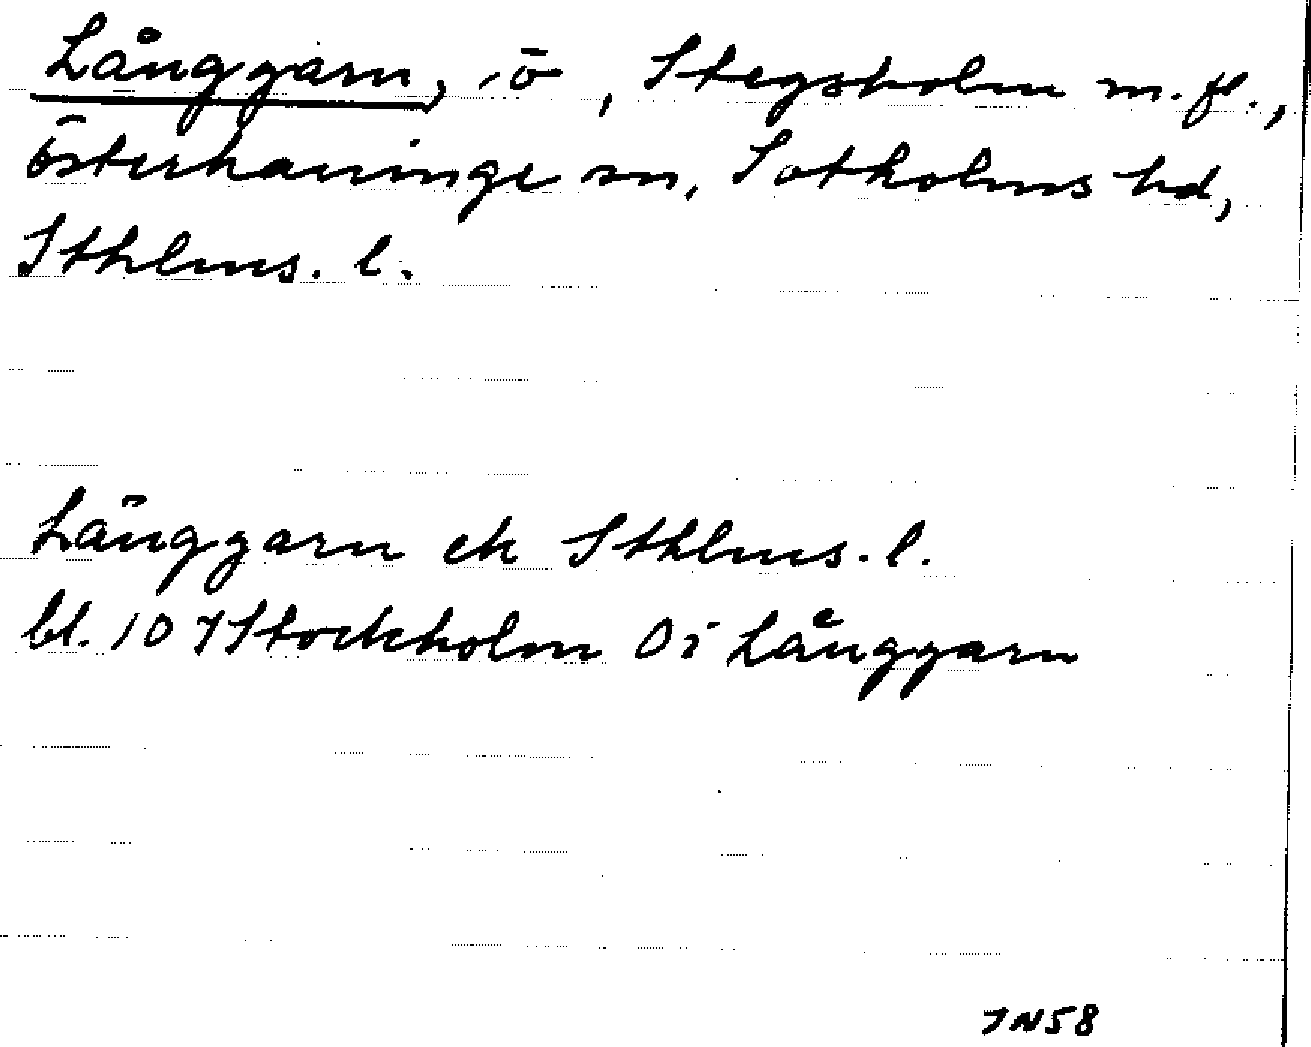 Långgarn, ö, Stegsholm m.fl.,
Österhaninge sn, Sotholms hd,
Sthlms. l.
Långgarn ek Sthlms. l.
bl. 10 I Stockholm Oi Långgarn
JN58